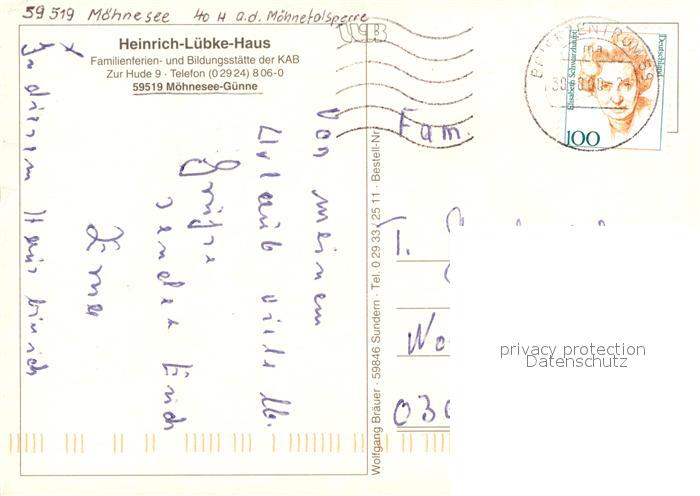 59519 Möhnesee 40 H a.d. Möhnetalsperre
Heinrich-Lübke-Haus
Familienferien- und Bildungsstätte der KAB
Zur Hude 9 · Telefon (0 29 24) 8 06-0
59519 Möhnesee-Günne
Von meinem
Urlaub viele lb.
Grüße
sendet Euch
Irma
In diesem Haus bin ich
Wolfgang Bräuer · 59846 Sundern · Tel. 0 29 33 / 25 11 · Bestell-Nr.
BRIEFZENTRUM 59
ma
Deutschland
Elisabeth Schwarzhaupt
100
Fam.
T.
privacy protection
Datenschutz